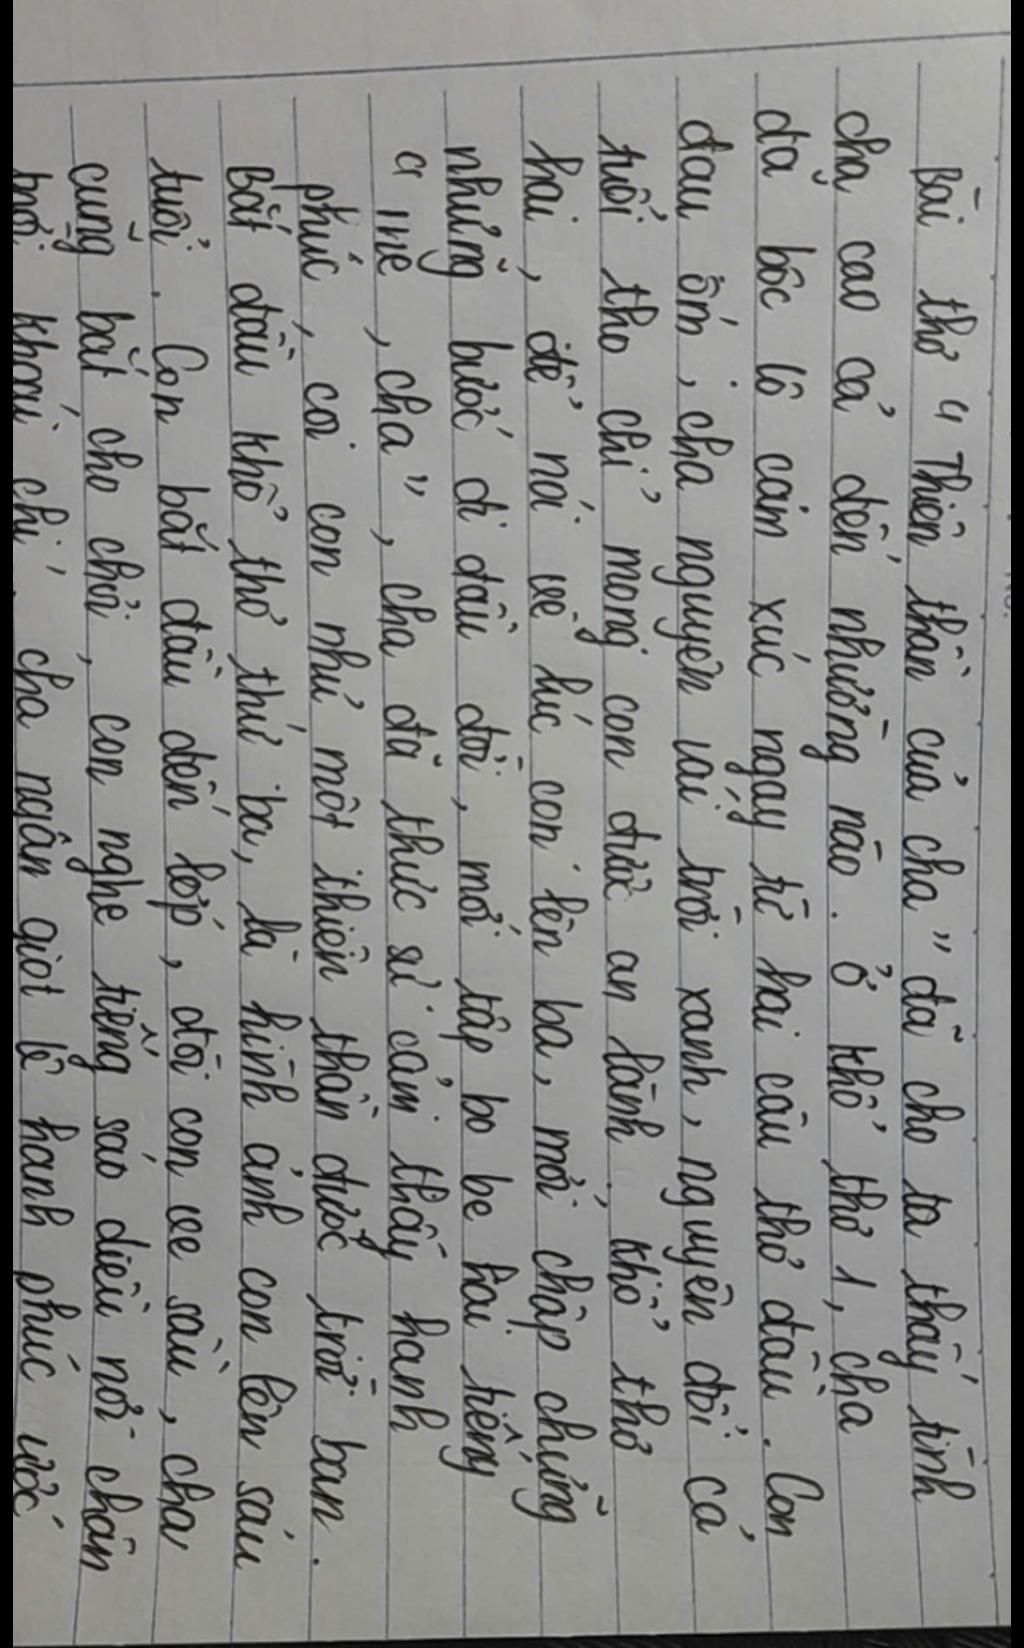 Bài thơ "Thiên thần của cha" đã cho ta thấy tình
cha cao cả đến nhường nào. Ở khổ thơ 1, cha
đã bộc lộ cảm xúc ngay từ hai câu thơ đầu. Con
đau ốm, cha nguyện vái trời xanh, nguyện đổi cả
tuổi thọ chỉ mong con được an lành. Khổ thơ
hai, để nói về lúc con lên ba, mới chập chững
những bước đi đầu đời, mới tập bo be hai tiếng
"mẹ, cha", cha đã thực sự cảm thấy hạnh
phúc, coi con như một thiên thần được trời ban.
Bắt đầu khổ thơ thứ ba, là hình ảnh con lên sáu
tuổi. Con bắt đầu đến lớp, đòi con ve sầu, cha
cũng bắt cho chơi, con nghe tiếng sáo diều nơi chân
trời khoái chí, cha ngân giọt lệ hạnh phúc ước